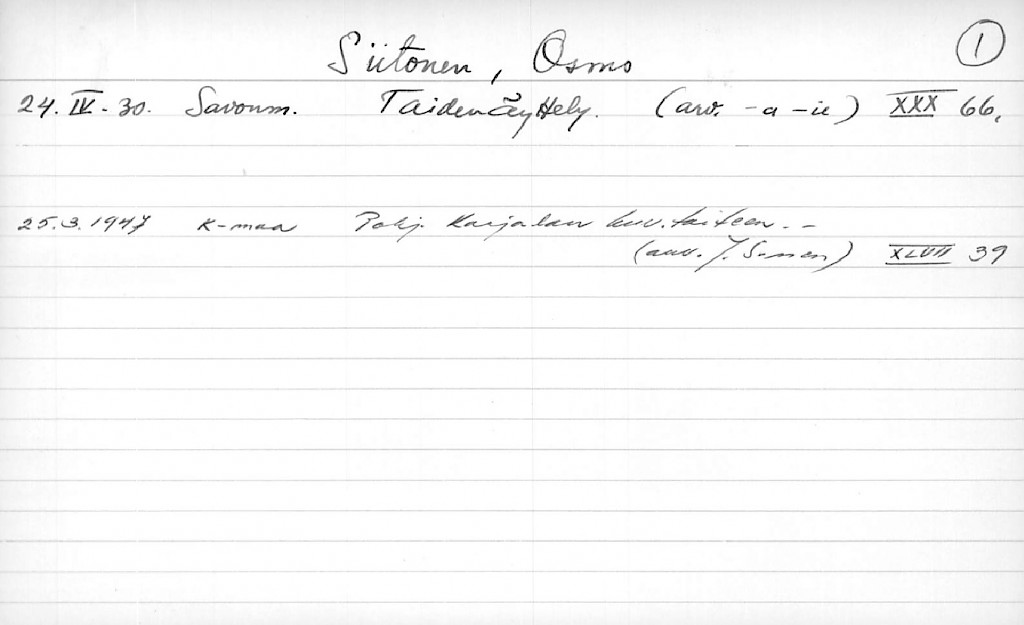 Siitonen, Osmo
1
24. IV. - 30. Savonm. Taiden (arv. - a - ie) XXX 66.
25.3.1947 K-maa Pohj. Karjalan kuv. taiteen. -
(arv. J. S-nen) XLVII 39